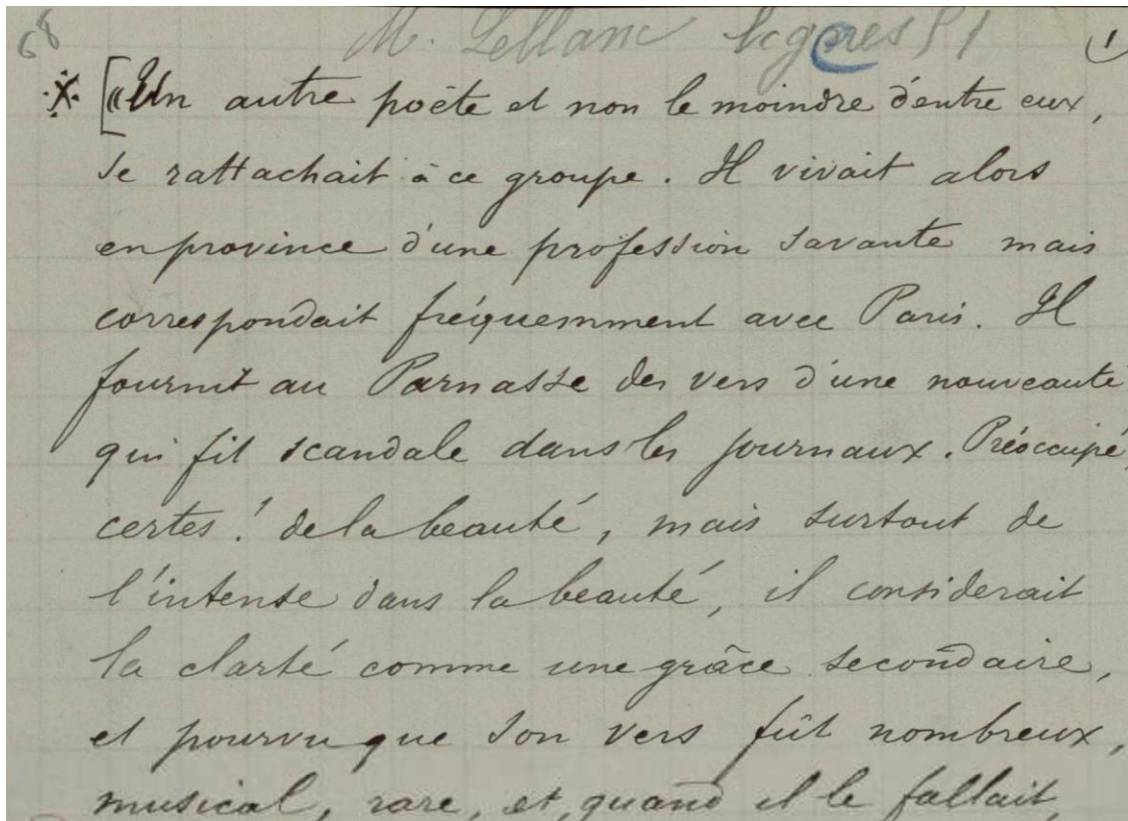 68 M. Leblanc 1
[«Un autre poète et non le moindre d'entre eux,
se rattachait à ce groupe. Il vivait alors
en province d'une profession savante mais
correspondait fréquemment avec Paris. Il
fournit au Parnasse des vers d'une nouveauté
qui fit scandale dans les journaux. Préoccupé,
certes! de la beauté, mais surtout de
l'intense dans la beauté, il considerait
la clarté comme une grâce secondaire,
et pourvu que son vers fût nombreux,
musical, rare, et, quand il le fallait,